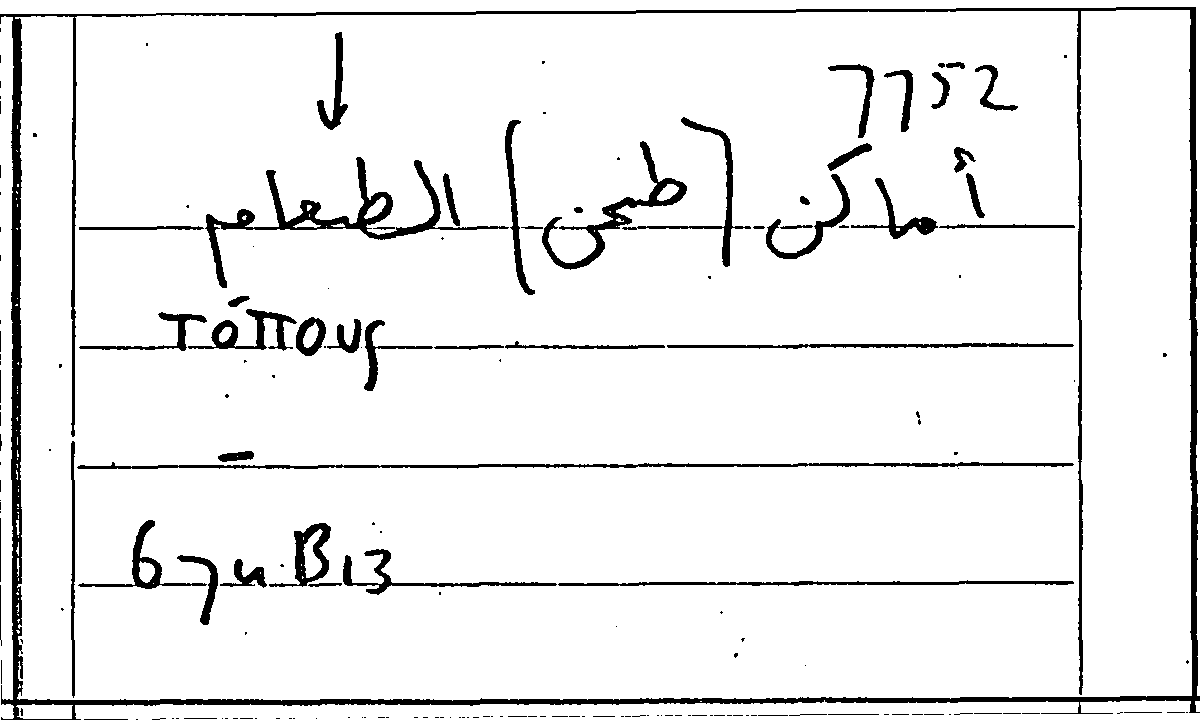 7752
أماكن [طحن] الطعام
τόπους
–
67a B13